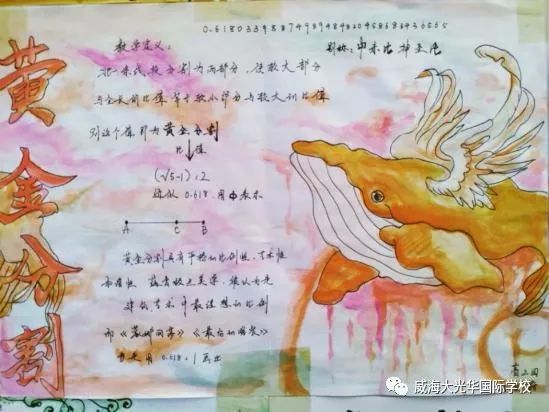 黄金分割
别称：
数学定义：
把一条线段分割为两部分，使较大部分
与全长的比值等于较小部分与较大的比值
则这个值即为黄金分割
比值
(√5-1):2
近似 0.618 用Φ表示
A C B
黄金分割具有严格的比例性、艺术性
和谐性，蕴含极之美学，被认为是
建筑、艺术中最理想的比例
《最后的晚餐》
也是用0.618:1画出
威海大光华国际学校